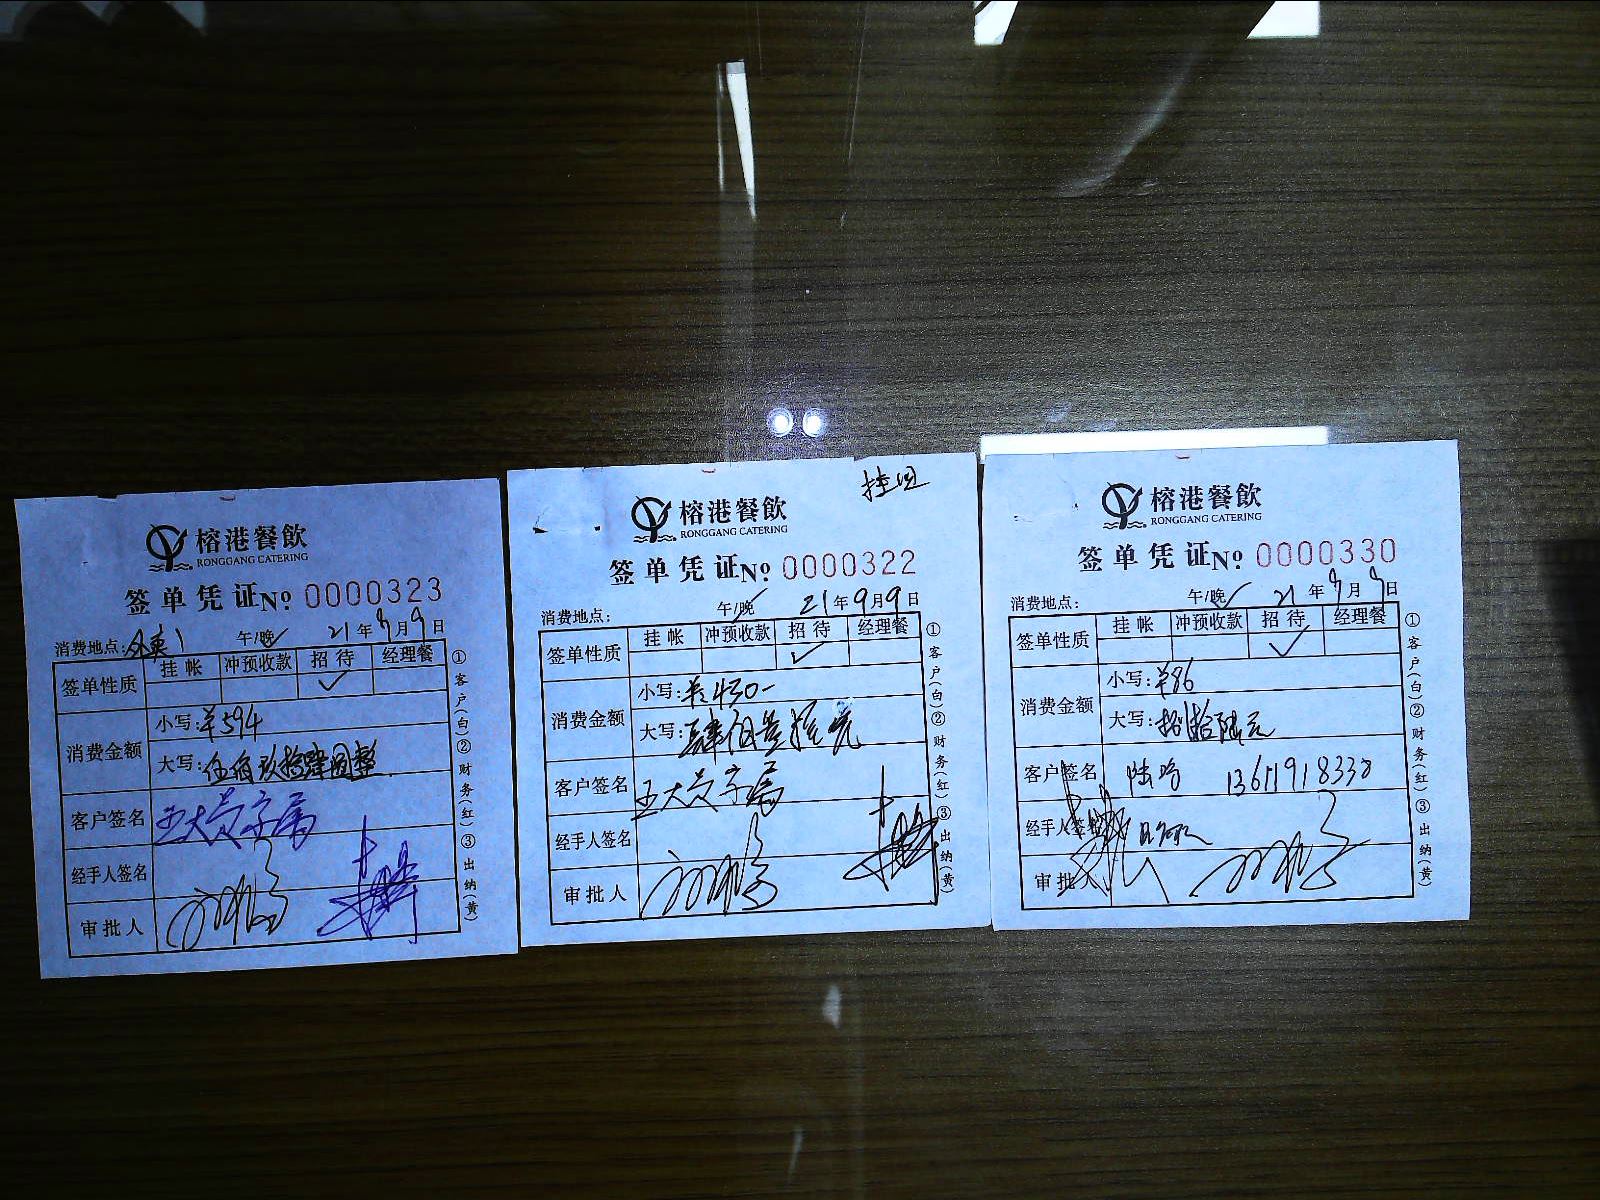 榕港餐飲
RONGGANG CATERING
签单凭证No 0000323
消费地点: 午/晚 21年9月9日
签单性质 挂帐 冲预收款 招待 经理餐
✓
消费金额
小写:¥594
大写:伍佰玖拾肆圆整
客户签名
经手人签名
审批人
①客户(白)②财务(红)③出纳(黄)
榕港餐飲
RONGGANG CATERING
签单凭证No 0000322
消费地点: 午/晚 21年9月9日
签单性质 挂帐 冲预收款 招待 经理餐
✓
消费金额
小写:¥430-
大写:肆佰叁拾元
客户签名
经手人签名
审批人
①客户(白)②财务(红)③出纳(黄)
榕港餐飲
RONGGANG CATERING
签单凭证No 0000330
消费地点: 午/晚 21年9月9日
签单性质 挂帐 冲预收款 招待 经理餐
✓
消费金额
小写:¥86
大写:捌拾陆元
客户签名
经手人签名
审批人
①客户(白)②财务(红)③出纳(黄)